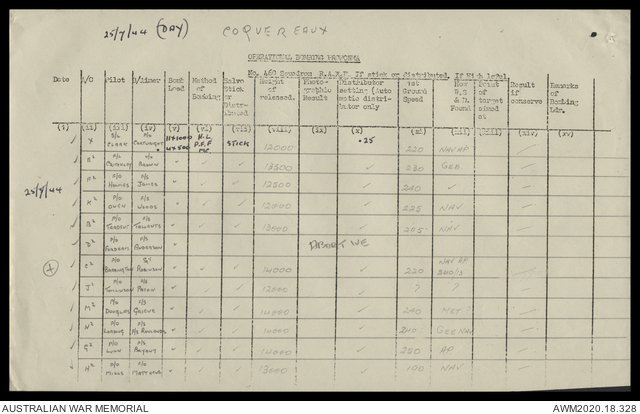 25/7/44 (DAY) COQUEREAUX
OPERATIONAL BOMBING PROFORMA
No. 460 Squadron R.A.A.F. If stick or distributed. If High level.
Date A/C Pilot B/Aimer Bomb Load Method of Bombing Salvo Stick or Distributed Height of released. Photographic Result Distributor setting (Automatic distributor only 1st Ground Speed How W.S & D. Found Point of target aimed at Result if conserve Remarks of Bombing Ldr.
(i) (ii) (iii) (iv) (v) (vi) (vii) (viii) (ix) (x) (xi) (xii) (xiii) (xiv) (xv)
✓ X CLARK CARTWRIGHT 11x1000 4x500 H.L P.F.F STICK 12000 .25 220 NAV AP
✓ B² BROWN 12500 230 GEE
25/7/44 ✓ F² P/O HOLMES F/S JONES 12500 240 ✓
✓ K² P/O OWEN F/S WOODS 12000 225 NAV
✓ B² P/O F/S TALLENTS 13000 205 NAV
D² P/O F/S ANDERSON ABORTIVE
+ ✓ E² P/O F/S ROBINSON 14000 220 NAV AP
✓ J² P/O TOMLINSON F/S 12000 ? ?
✓ M² P/O DOUGLAS F/S GREENE 14000 240 MET
✓ N² P/O F/S 14000 240 GEE NAV
✓ G² P/O LYNN F/S BRYANT 14000 250 AP
✓ H² P/O MILLS F/S MATTHEWS 13000 190 NAV
AUSTRALIAN WAR MEMORIAL AWM2020.18.328